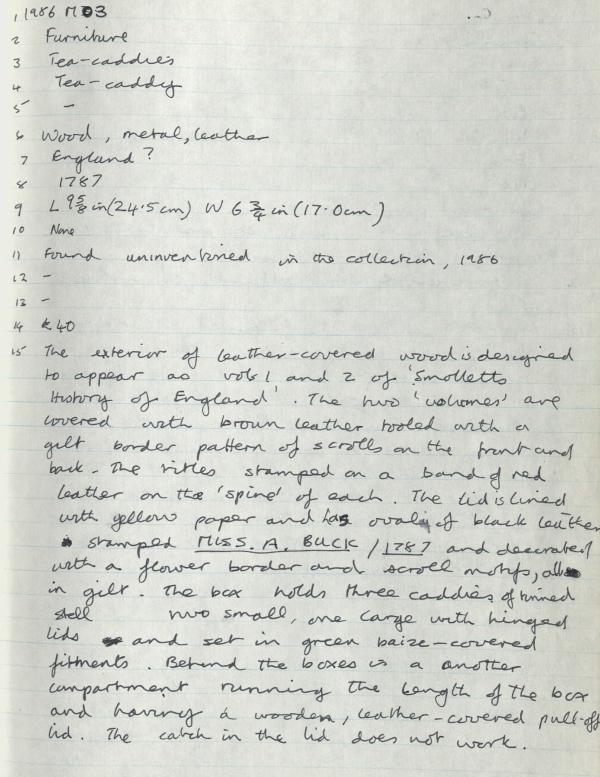 1 1986 M03
2 Furniture
3 Tea-caddies
4 Tea-caddy
5 -
6 Wood, metal, leather
7 England?
8 1787
9 L 9 5/8 in (24.5cm) W 6 3/4 in (17.0cm)
10 None
11 Found uninventoried in the collection, 1986
12 -
13 -
14 £40
15 The exterior of leather-covered wood is designed
to appear as vols 1 and 2 of 'Smolletts
History of England'. The two 'volumes' are
covered with brown leather tooled with a
gilt border pattern of scrolls on the front and
back. The titles stamped on a band of red
leather on the 'spine' of each. The lid is lined
with yellow paper and has oval of black leather
stamped MISS. A. BUCK / 1787 and decorated
with a flower border and scroll motifs, all
in gilt. The box holds three caddies of tinned
steel two small, one large with hinged
lids and set in green baize-covered
fitments. Behind the boxes is a another
compartment running the length of the box
and having a wooden, leather-covered pull-off
lid. The catch in the lid does not work.